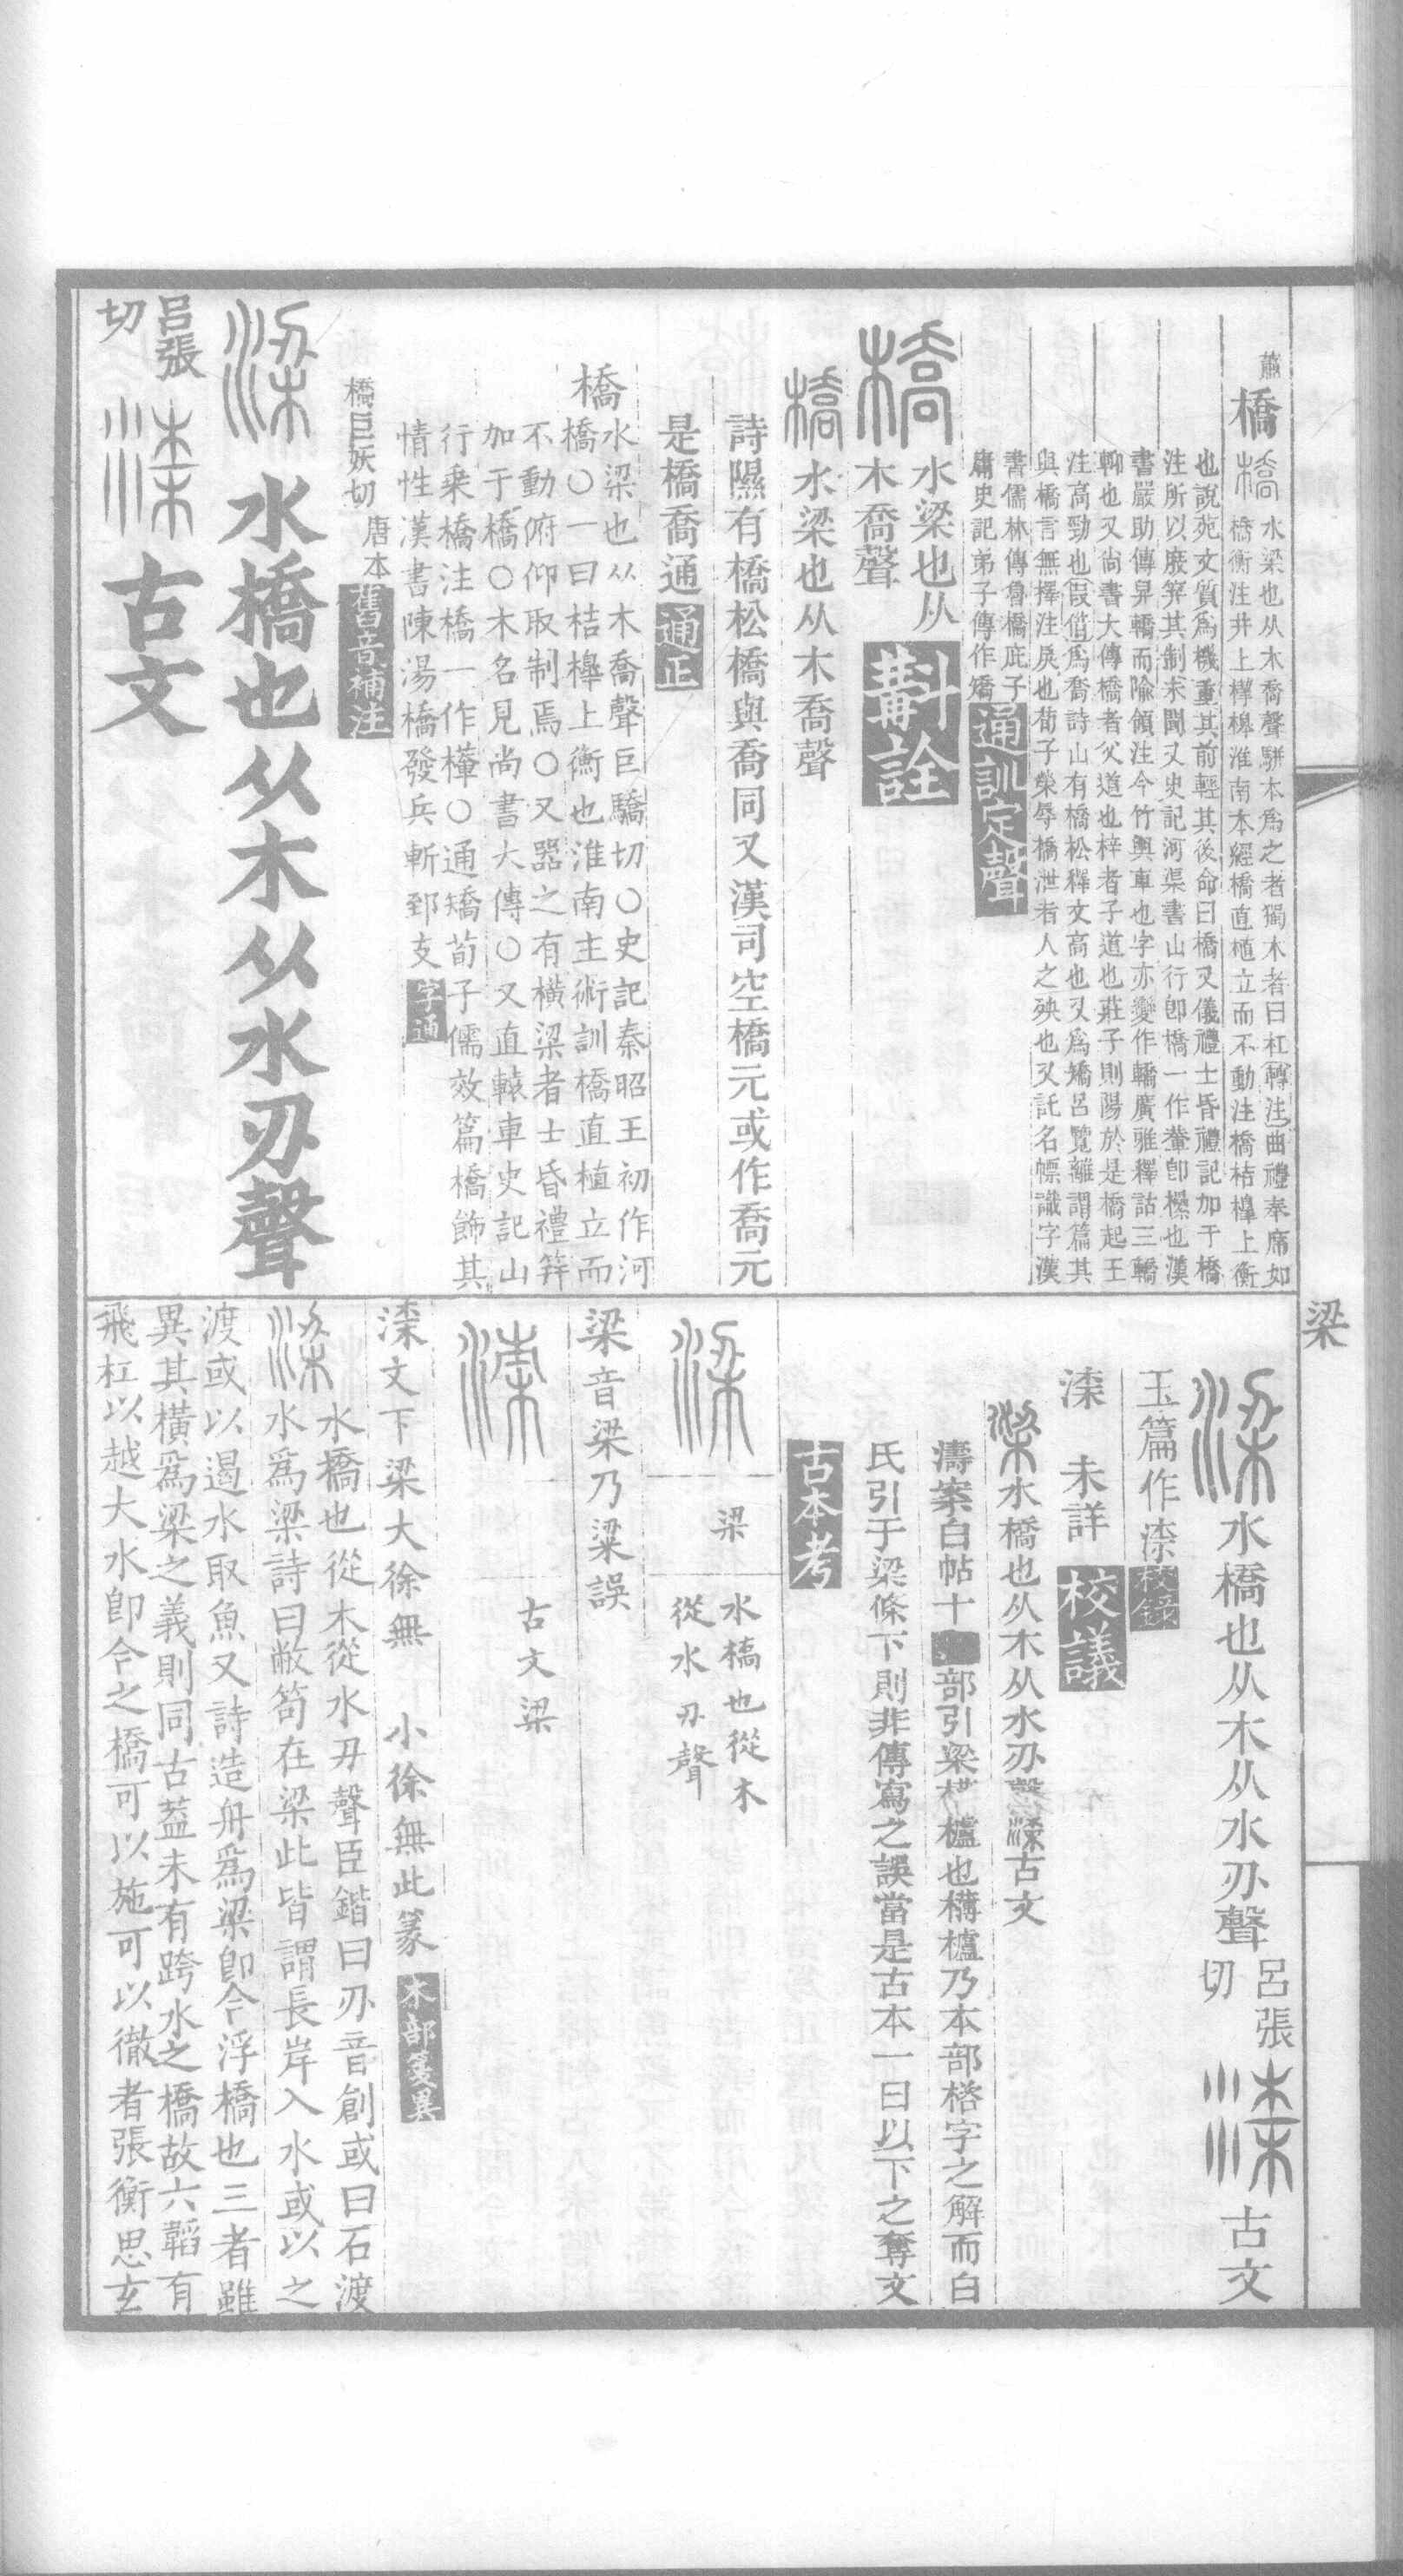 蕭
橋 橋 水梁也从木喬聲駢木爲之者獨木者曰杠轉注曲禮奉席如
橋衡注井上樺橰淮南本經橋直植立而不動注橋桔橰上衡
也說苑文質爲機重其前輕其後命曰橋又儀禮士昏禮記加于橋
注所以廢笲其制未聞又史記河渠書山行卽橋一作輂卽檋也漢
書嚴助傳舁轎而隃領注今竹輿車也字亦變作轎廣雅釋詁三轎
輈也又尚書大傳橋者父道也梓者子道也莊子則陽於是橋起王
注高勁也叚借爲喬詩山有橋松釋文高也又爲矯呂覽離謂篇其
與橋言無擇注戾也荀子榮辱橋泄者人之殃也又託名幖識字漢
書儒林傳魯橋庇子
庸史記弟子傳作矯
通訓定聲
橋 水梁也从
木喬聲
斠詮
橋 水梁也从木喬聲
詩隰有橋松橋與喬同又漢司空橋元或作喬元
是橋喬通 通正
橋 水梁也从木喬聲巨驕切〇史記秦昭王初作河
橋〇一曰桔橰上衡也淮南主術訓橋直植立而
不動俯仰取制焉〇又器之有橫梁者士昏禮笲
加于橋〇木名見尚書大傳〇又直轅車史記山
行乘橋注橋一作檋〇通矯荀子儒效篇橋飾其
情性漢書陳湯橋發兵斬郅支 字通
橋巨妖切 唐本
舊音補注
梁 水橋也从木从水刅聲
呂張
切 古文
梁
梁 水橋也从木从水刅聲
呂張
切 古文
玉篇作㴍 校錄
㴍 未詳 校議
梁 水橋也从木从水刅聲 古文
濤案白帖十 部引梁欂櫨也構櫨乃本部楶字之解而白
氏引于梁條下則非傳寫之誤當是古本一曰以下之奪文
古本考
梁 梁 水橋也從木
從水刅聲
梁音梁乃粱誤
古文梁
㴍文下梁大徐無 小徐無此篆 木部箋異
梁 水橋也從木從水刅聲臣鍇曰刅音創或曰石渡
水爲梁詩曰敝笱在梁此皆謂長岸入水或以之
渡或以遏水取魚又詩造舟爲梁卽今浮橋也三者雖
異其橫爲梁之義則同古葢未有跨水之橋故六韜有
飛杠以越大水卽今之橋可以施可以徹者張衡思玄